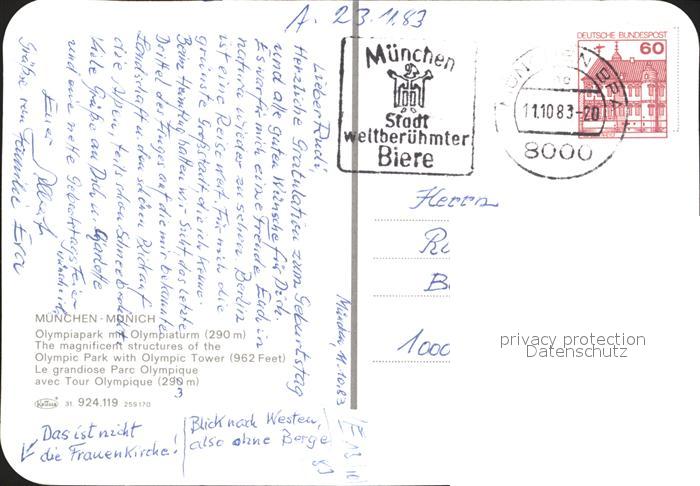 A. 23.11.83
München
Stadt
weltberühmter
Biere
DEUTSCHE BUNDESPOST
60
11.10.83-20
8000
Lieber Rudi,
Herzliche Gratulation zum Geburtstag
und alle guten Wünsche für Dich.
Es war für mich eine Freude Euch in
natura wieder zu sehen. Berlin
ist eine Reise wert. Für mich die
grünste Großstadt, die ich kenne.
Beim Heimflug hatten wir Sicht, das letzte
Drittel des Fluges auf die mir bekannte
Landschaft u. den schönen Blick auf
die Alpen, teils schon Schneebedeckt
Viele Grüße an Dich u. Charlotte
und eine nette Geburtstagsfeier
wünscht
Euer
Grüße von Familie
München, 11.10.83
Herrn
1000
MÜNCHEN - MUNICH
Olympiapark mit Olympiaturm (290 m)
The magnificent structures of the
Olympic Park with Olympic Tower (962 Feet)
Le grandiose Parc Olympique
avec Tour Olympique (290 m)
Krüger 31 924.119 259170
Das ist nicht
die Frauenkirche!
Blick nach Westen,
also ohne Berge
privacy protection
Datenschutz